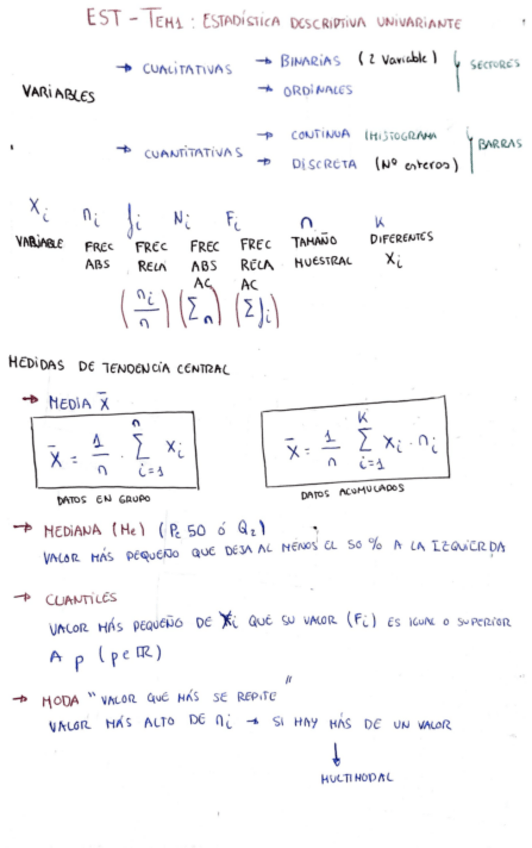 EST - TEMA 1 : ESTADÍSTICA DESCRIPTIVA UNIVARIANTE
VARIABLES
→ CUALITATIVAS → BINARIAS (2 Variable) SECTORES
→ ORDINALES
→ CUANTITATIVAS → CONTINUA (HISTOGRAMA BARRAS
→ DISCRETA (Nº enteros)
Xi ni fi Ni Fi n K
VARIABLE FREC ABS FREC RELA FREC ABS AC FREC RELA AC TAMAÑO MUESTRAL DIFERENTES Xi
(ni/n) (Σn) (Σfi)
MEDIDAS DE TENDENCIA CENTRAL
→ MEDIA X̄
X̄ = 1/n · Σ(i=1, n) Xi
DATOS EN GRUPO
X̄ = 1/n Σ(i=1, K) Xi · ni
DATOS ACUMULADOS
→ MEDIANA (Me) (Pc 50 ó Q2)
VALOR MÁS PEQUEÑO QUE DEJA AL MENOS EL 50 % A LA IZQUIERDA
→ CUANTILES
VALOR MÁS PEQUEÑO DE Xi QUE SU VALOR (Fi) ES IGUAL O SUPERIOR
A p (p∈ℝ)
→ MODA "VALOR QUE MÁS SE REPITE"
VALOR MÁS ALTO DE ni → SI HAY MÁS DE UN VALOR
↓
MULTIMODAL